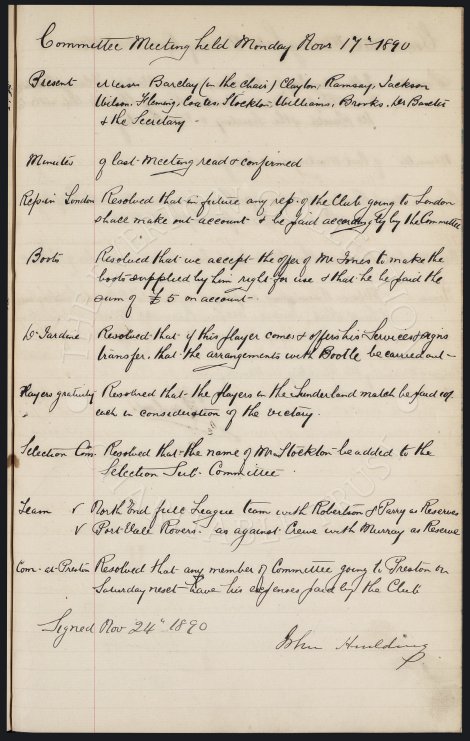 Committee Meeting held Monday Novr 17th 1890
Present Messrs Barclay (in the chair) Clayton, Ramsay, Jackson
Wilson, Fleming, Coates, Stockton, Williams, Brooks, Dr Baxter
& the Secretary
Minutes of last Meeting read & confirmed
Reps in London Resolved that in future any rep. of the Club going to London
shall make out account & be paid accordingly by the Committee
Boots Resolved that we accept the offer of Mr Jones to make the
boots supplied by him right for use & that he be paid the
sum of £5 on account
D. Jardine Resolved that if this player comes & offers his Services & signs
transfer, that the arrangements with Bootle be carried out
Players gratuity Resolved that the players in the Sunderland match be paid 10/-
each in consideration of the victory.
Selection Com. Resolved that the name of Mr Stockton be added to the
Selection Sub-Committee
Team v North End full League team with Robertson & Parry as Reserves
v Port Vale Rovers. as against Crewe with Murray as Reserve
Com. at Preston Resolved that any member of Committee going to Preston on
Saturday next have his expenses paid by the Club
Signed Nov 24th 1890
John Houlding